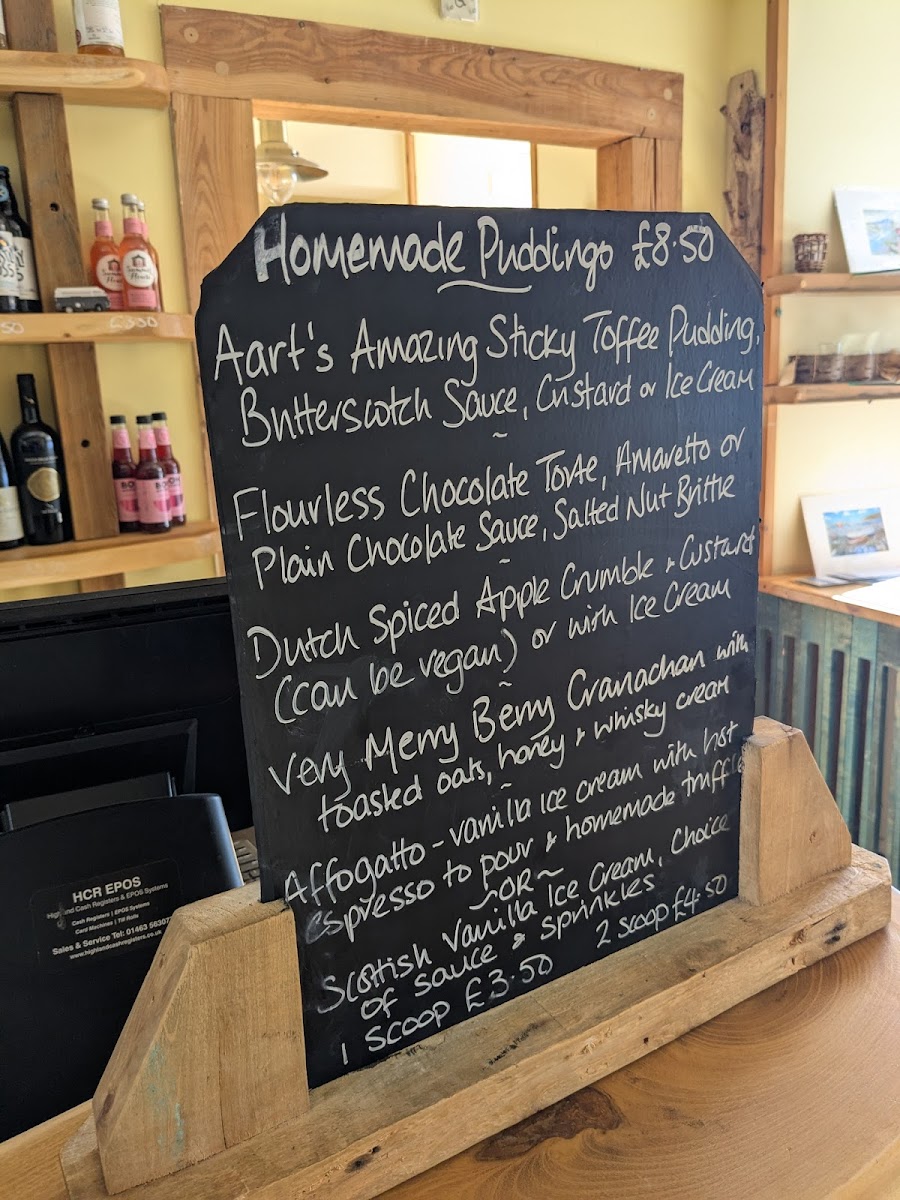 Homemade Puddings £8.50
Aart's Amazing Sticky Toffee Pudding,
Butterscotch Sauce, Custard or Ice Cream
~
Flourless Chocolate Torte, Amaretto or
Plain Chocolate Sauce, Salted Nut Brittle
~
Dutch Spiced Apple Crumble & Custard
(can be vegan) or with Ice Cream
~
Very Merry Berry Cranachan with
toasted oats, honey & whisky cream
~
Affogatto - vanilla ice cream with hot
espresso to pour & homemade truffle
~OR~
Scottish Vanilla Ice Cream, Choice
of sauce & sprinkles
1 scoop £3.50 2 scoop £4.50
HCR EPOS
Highland Cash Registers & EPOS Systems
Cash Registers | EPOS Systems
Card Machines | Till Rolls
Sales & Service Tel: 01463
www.highlandcashregisters.co.uk